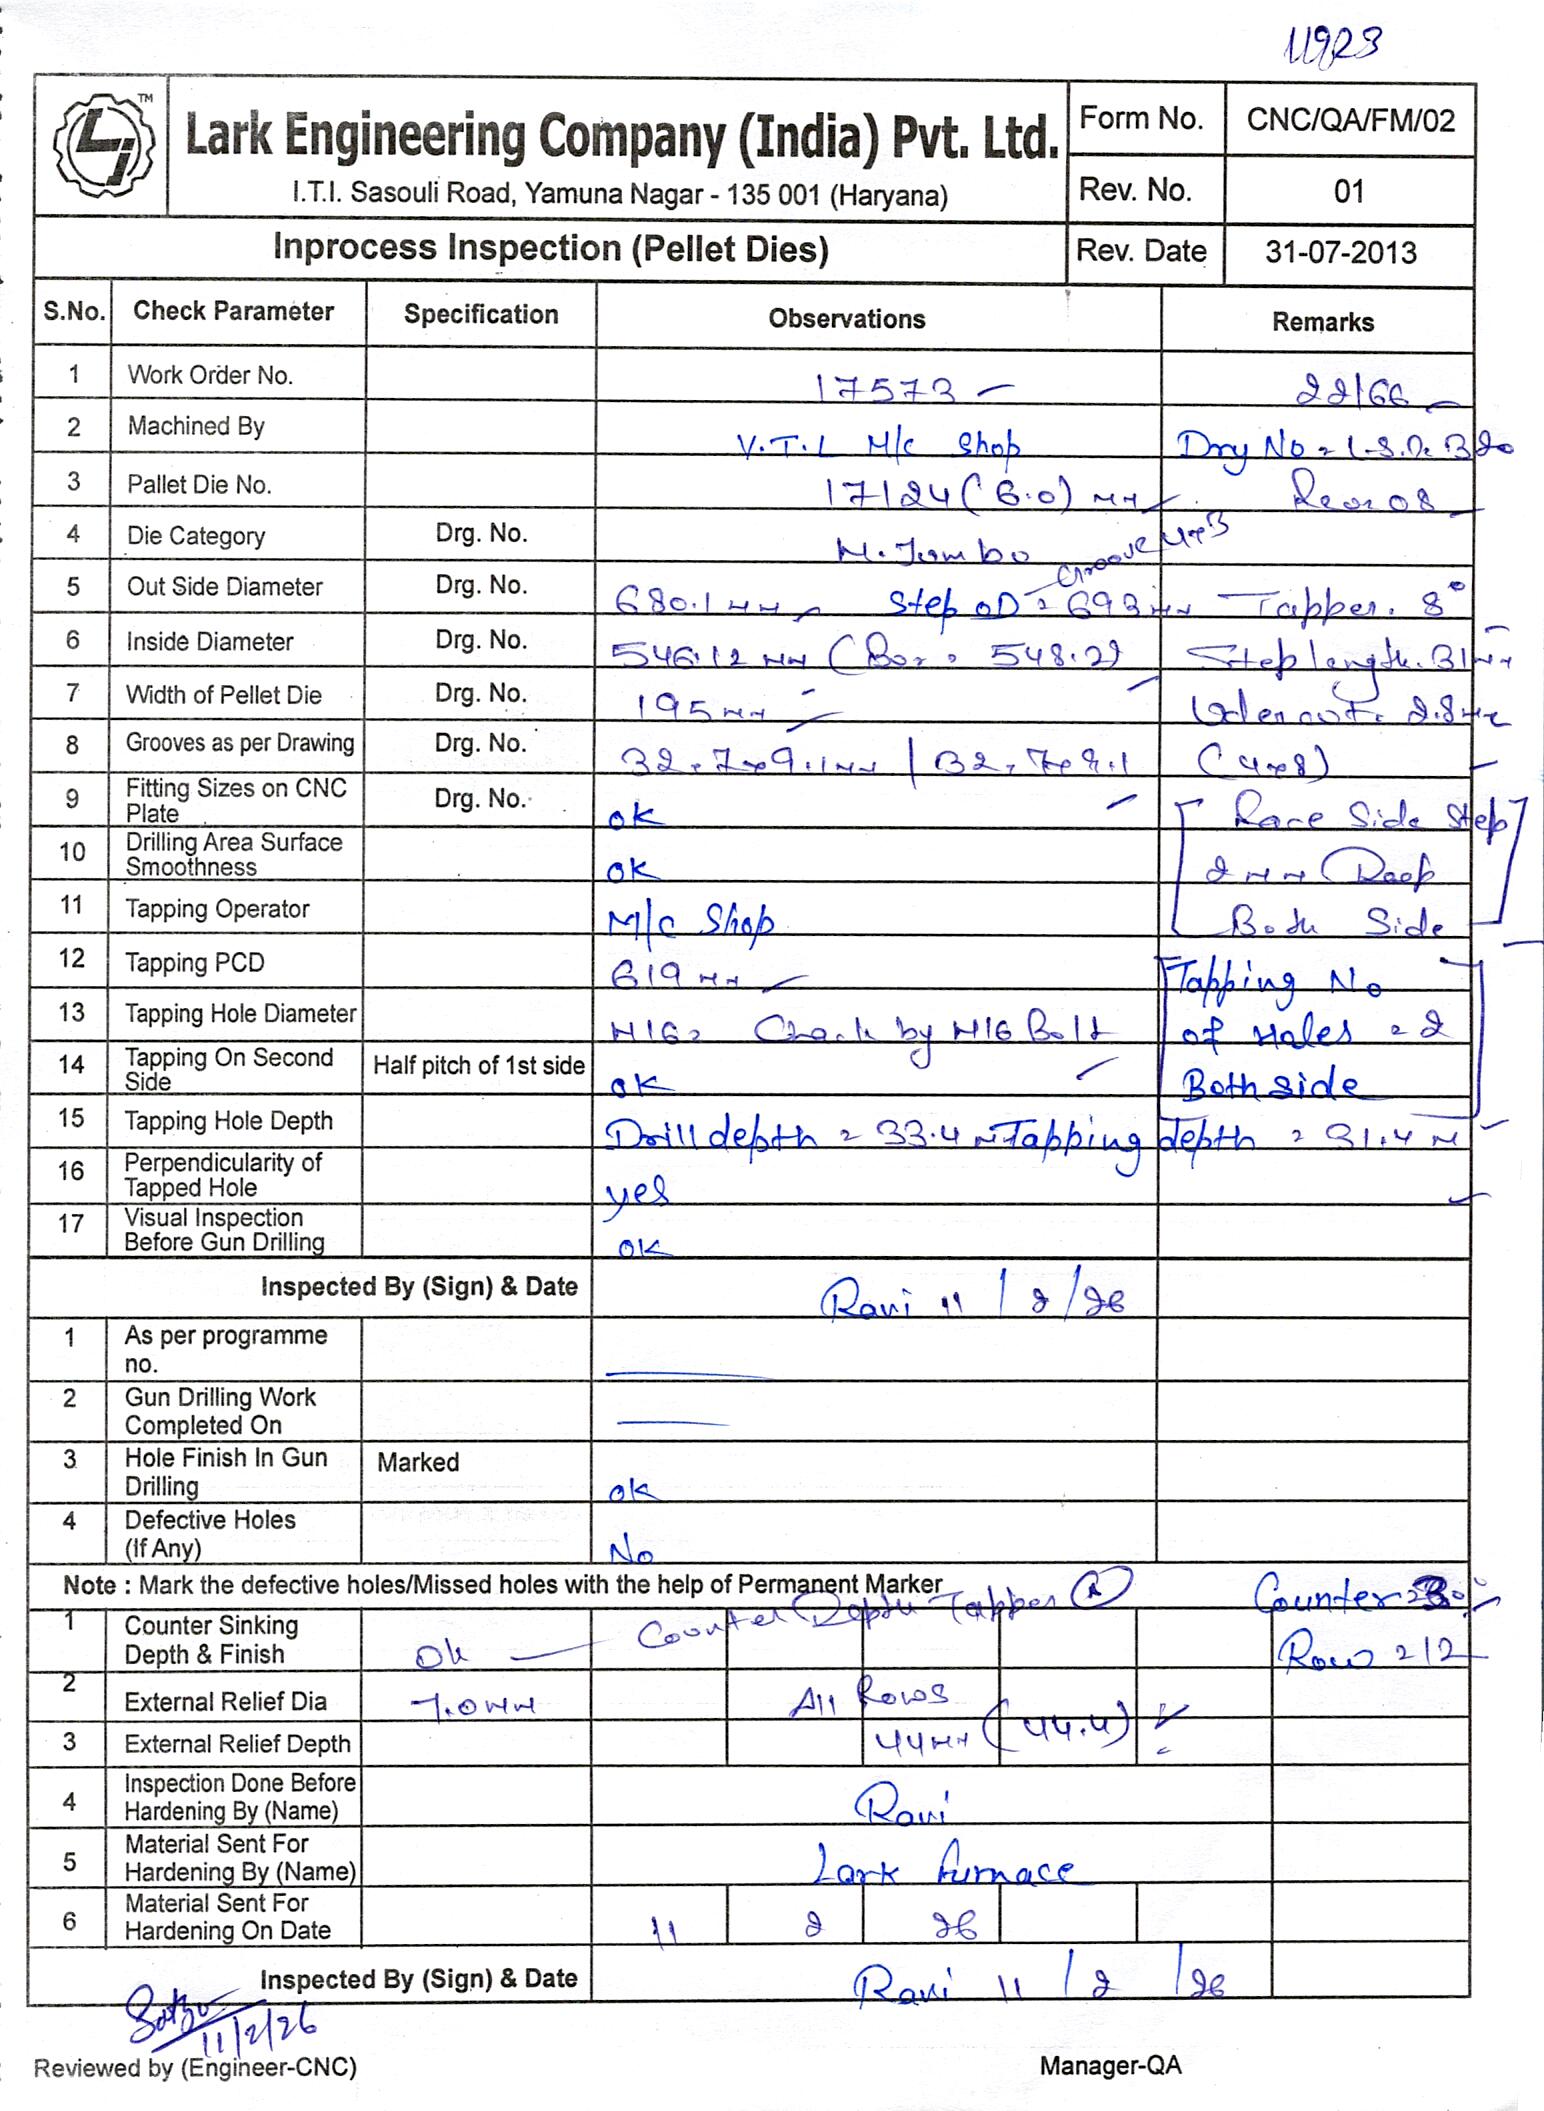 11923
LJ TM
Lark Engineering Company (India) Pvt. Ltd.
I.T.I. Sasouli Road, Yamuna Nagar - 135 001 (Haryana)
Form No. CNC/QA/FM/02
Rev. No. 01
Inprocess Inspection (Pellet Dies) Rev. Date 31-07-2013
S.No. Check Parameter Specification Observations Remarks
1 Work Order No. 17573 22/66
2 Machined By V.T.L M/c Shop Drg No = L.S.D. 320
3 Pallet Die No. 17124 (6.0) mm Rev = 08
4 Die Category Drg. No. M. Jumbo Groove 4x3
5 Out Side Diameter Drg. No. 680.1 mm Step OD = 693 mm Tapper. 8°
6 Inside Diameter Drg. No. 546.12 mm (Bor = 548.2) Step length. 31mm
7 Width of Pellet Die Drg. No. 195 mm 2.8mm
8 Grooves as per Drawing Drg. No. 32.7x9.1mm | 32.7x9.1 (4x8)
9 Fitting Sizes on CNC Plate Drg. No. ok Race Side Step
10 Drilling Area Surface Smoothness ok 2 mm Deep
11 Tapping Operator M/c Shop Both Side
12 Tapping PCD 619 mm Tapping No
13 Tapping Hole Diameter M16 = Check by M16 Bolt of Holes = 2
14 Tapping On Second Side Half pitch of 1st side ok Both side
15 Tapping Hole Depth Drill depth = 33.4 m Tapping depth = 31.4 m
16 Perpendicularity of Tapped Hole yes
17 Visual Inspection Before Gun Drilling ok
Inspected By (Sign) & Date Ravi 11/2/26
1 As per programme no.
2 Gun Drilling Work Completed On
3 Hole Finish In Gun Drilling Marked ok
4 Defective Holes (If Any) No
Note : Mark the defective holes/Missed holes with the help of Permanent Marker
1 Counter Sinking Depth & Finish Ok Counter Depth Tapper Counter
Row = 12
2 External Relief Dia 7.0mm All Rows
3 External Relief Depth 44mm (44.4)
4 Inspection Done Before Hardening By (Name) Ravi
5 Material Sent For Hardening By (Name) Lark furnace
6 Material Sent For Hardening On Date 11 2 26
Inspected By (Sign) & Date Ravi 11/2/26
11/2/26
Reviewed by (Engineer-CNC) Manager-QA